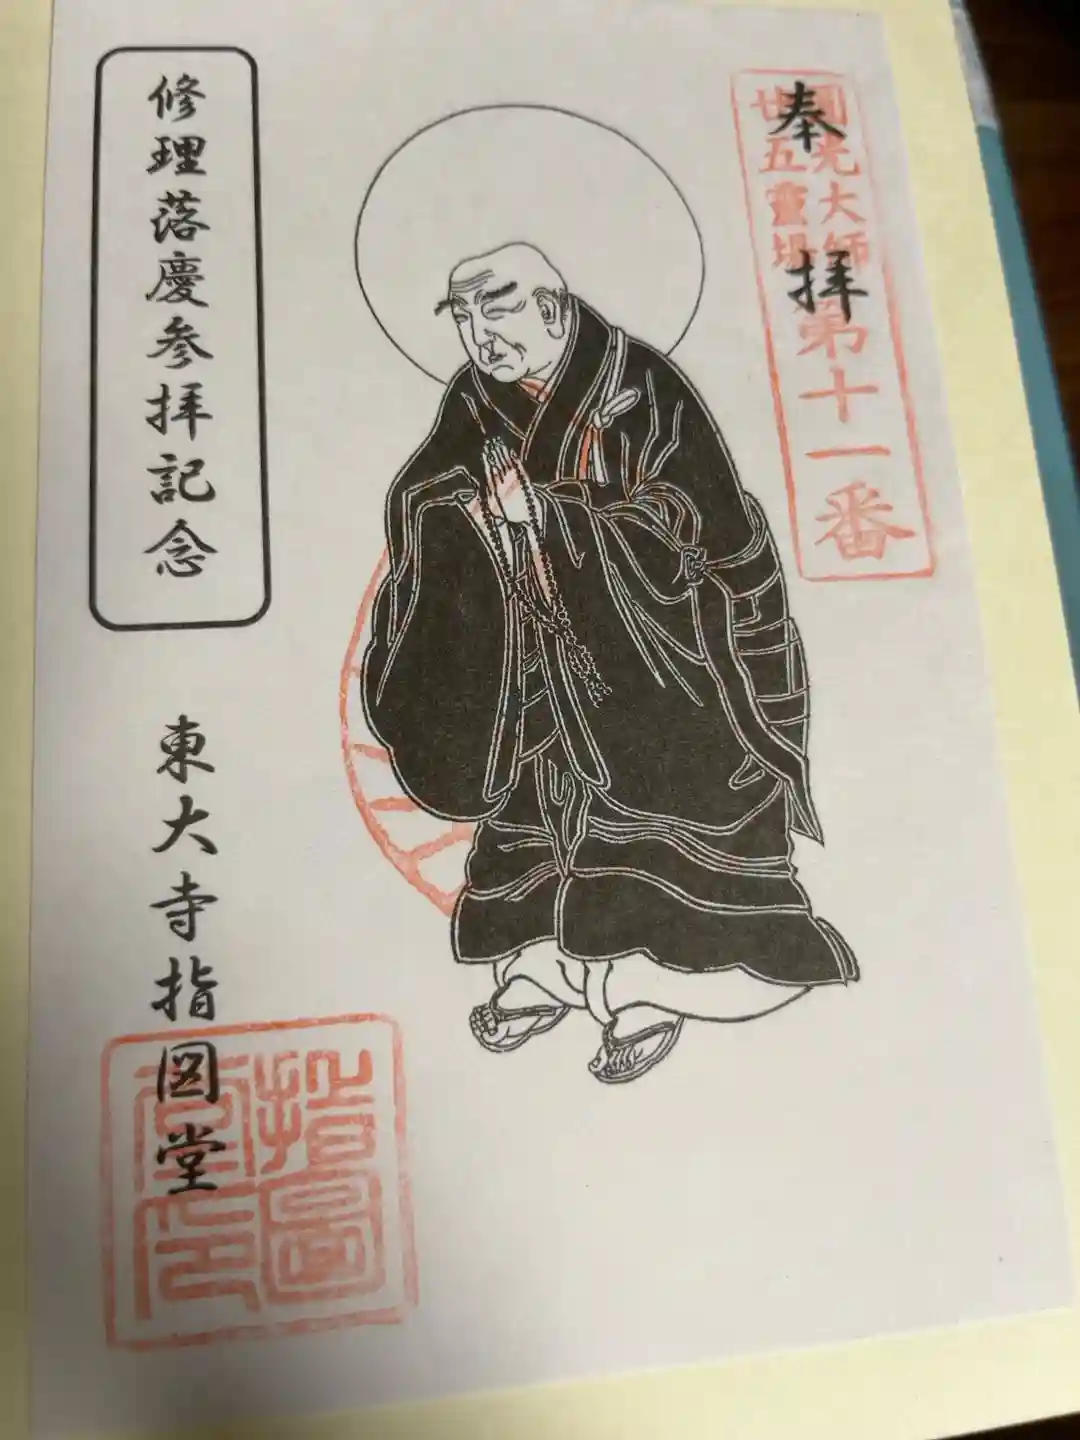 奉拝
圓光大師
廿五霊場
第十一番
修理落慶参拝記念
東大寺指図堂
指圖
堂印